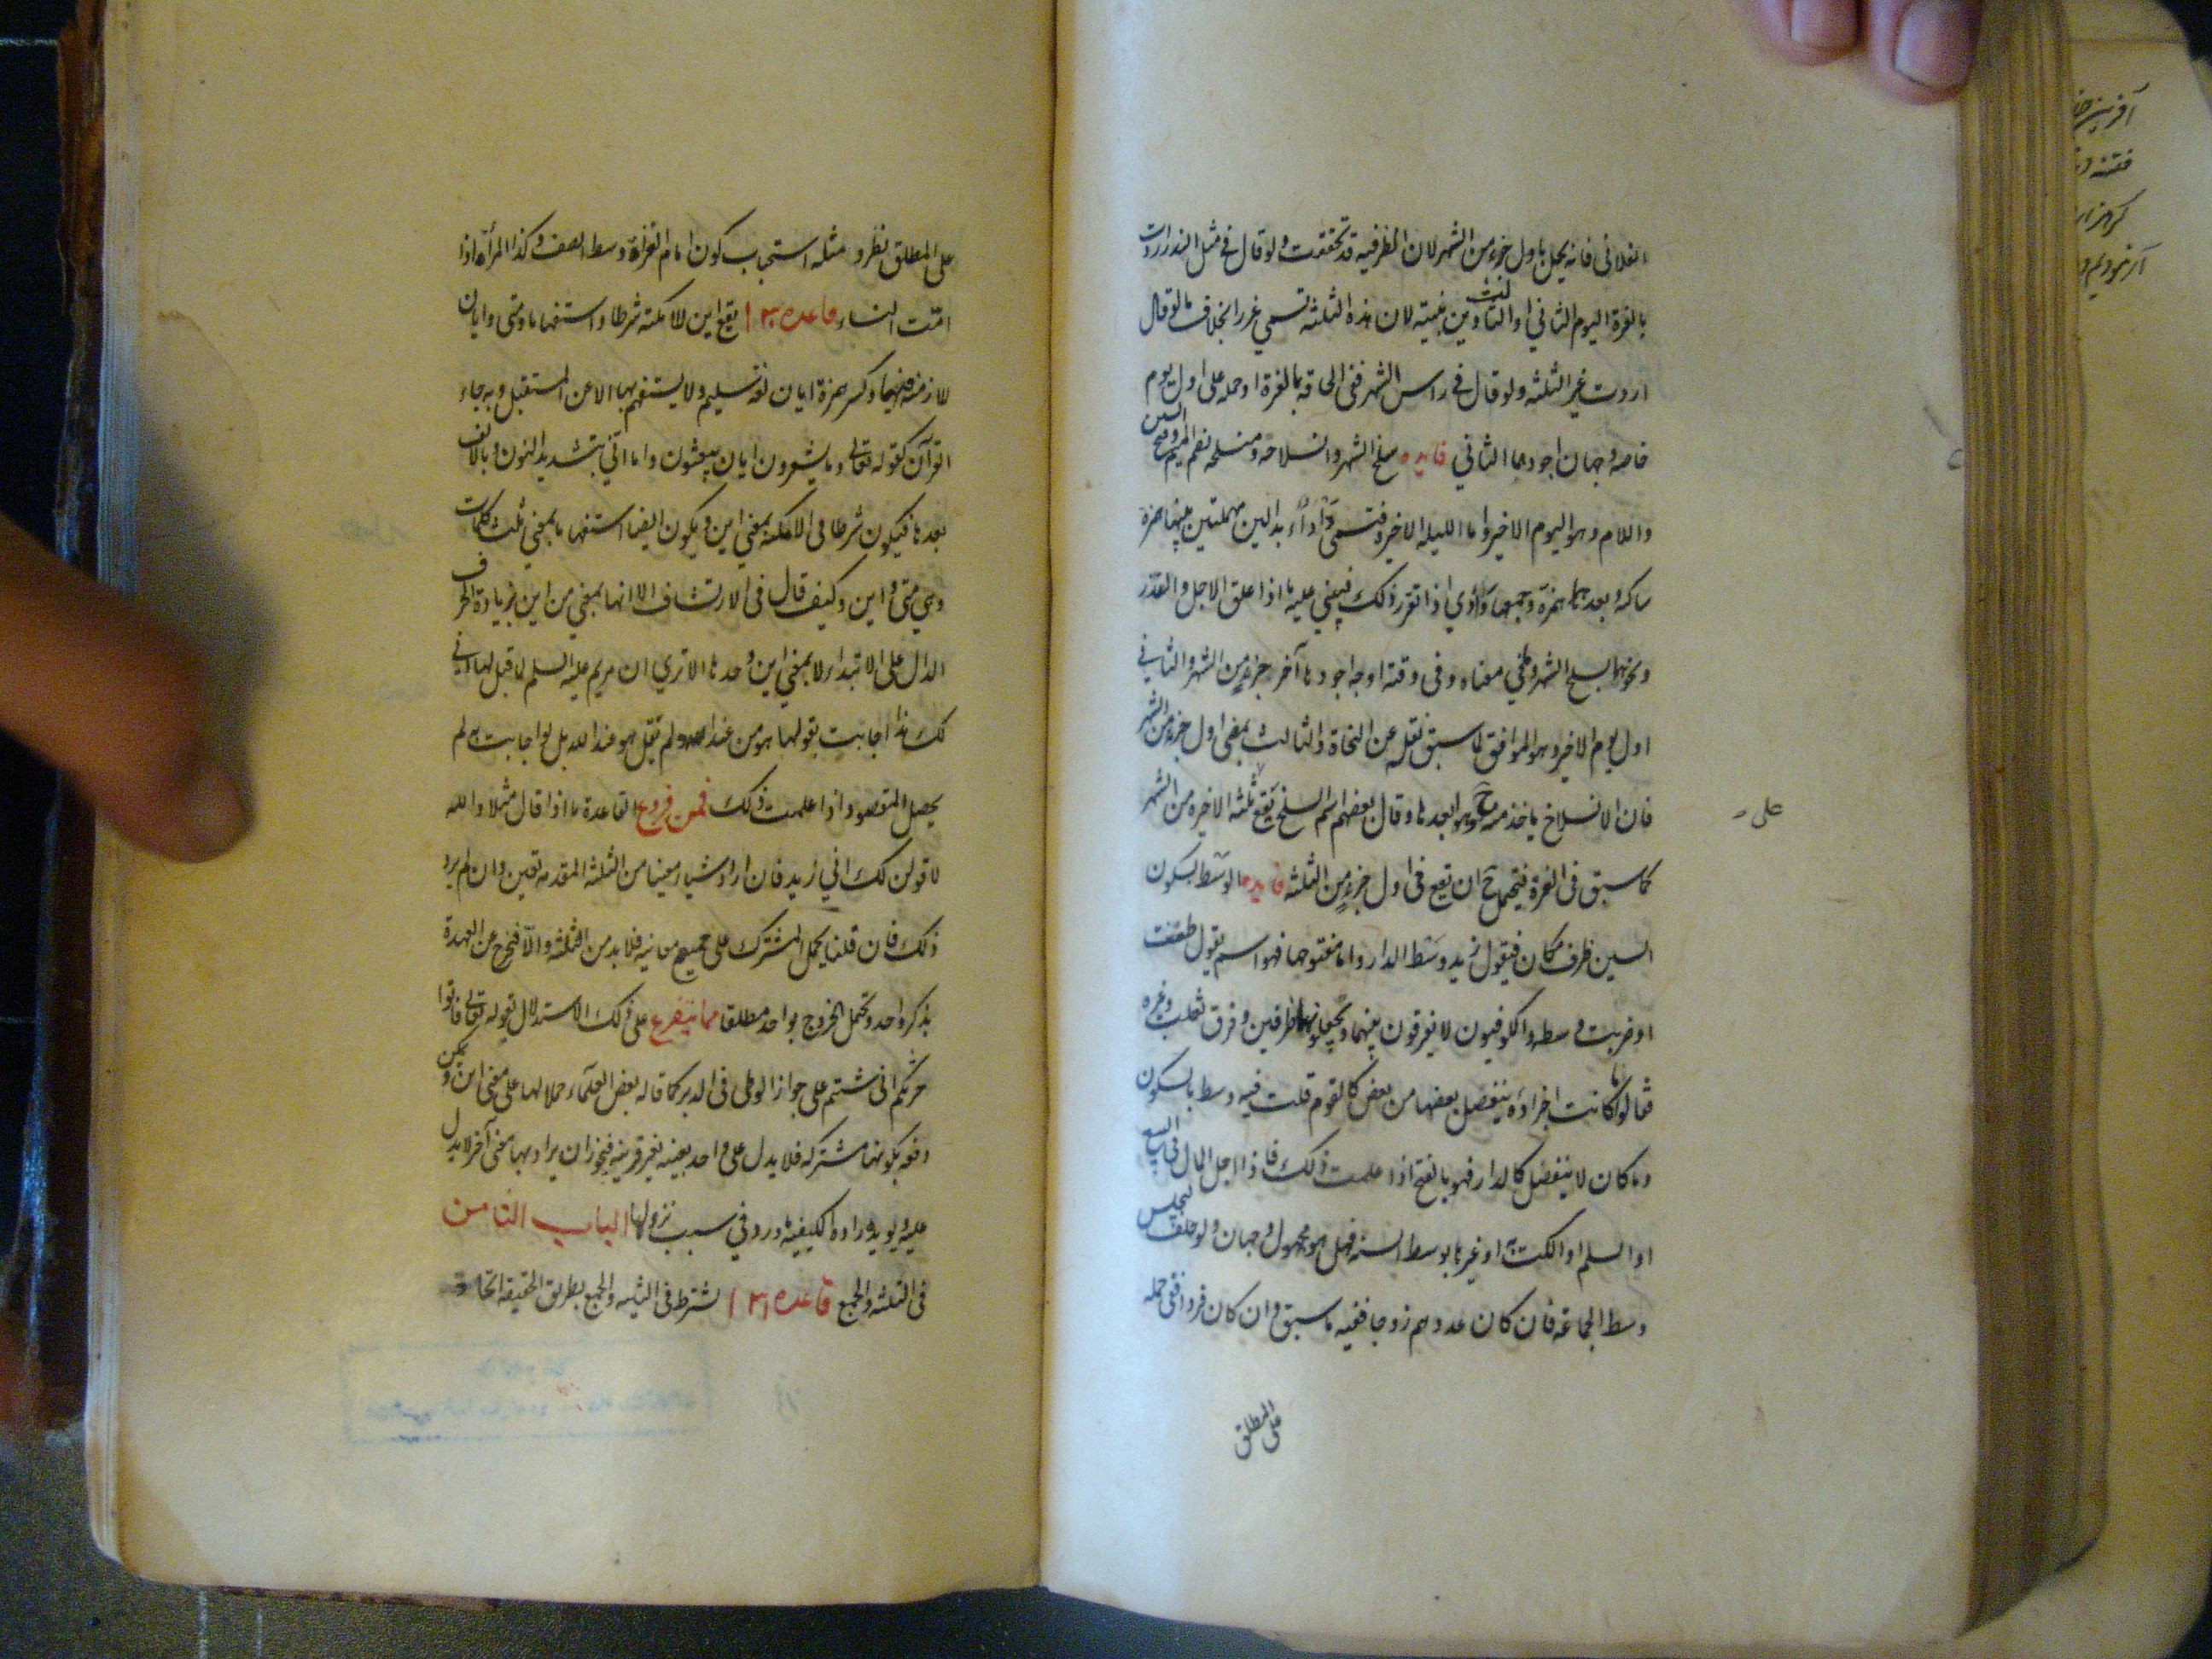 الفلاني فانه يحل باول جزء من الشهر لان الظرفيه قد تحققت ولو قال في مثل النذر اردت
بالغرة اليوم الثاني او الثالث دين بنيته لان هذه الثلثة تسمي غررا بخلاف ما لو قال
اردت غير الثلثه ولو قال في راس الشهر ففي الحاقه بالغرة او حمله على اول يوم
خاصه وجهان اجودهما الثاني فايده سلخ الشهر وانسلاخه ومنسلخه بضم الميم وفتح السين
واللام وهو اليوم الاخير واما الليله الاخيرة فتسمى دأداء بدالين مهملتين بينهما همزة
ساكنه وبعدهما همزة وجمعها دآدي اذا تقرر ذلك فينبني عليه ما اذا علق الاجل والنذر
ونحوهما بسلخ الشهر وفي معناه وفي وقته اوجه اجودها آخر جزء من الشهر والثاني في
اول يوم الاخير وهو الموافق لما سبق نقله عن النحاة والثالث بمضى اول جزء من الشهر
فان الانسلاخ ياخذ منه ح وهو ابعدها وقال بعضهم اسم السلخ يقع ثلثه الاخيره من الشهر
على
كما سبق فى الغرة فيحتمل ح ان تقع فى اول جزء من الثلثه فايده الوسط بسكون
السين ظرف مكان فيقول زيد وسط الدار واما مفتوحها فهو اسم يقول طعنت
او ضربت وسطه والكوفيون لا يفرقون بينهما ويجعلونهما ظرفين وفرق ثعلب وغيره
فقالوا ما كانت اجزاؤه ينفصل بعضها من بعض كالقوم قلت فيه وسط بالسكون
وما كان لا ينفصل كالدار فهو بالفتح اذا علمت ذلك فاذا اجل المال فى البيع
او السلم او الكتابه او غيرها بوسط السنه فهل هو مجهول وجهان ولو حلف ليجلس
وسط الجماعة فان كان عددهم زوجا ففيه ما سبق وان كان فردا ففي حمله
على المطلق
على المطلق نظر ومثله استحباب كون امام العراة وسط الصف وكذا المرأة اذا
امّت النساء قاعده ١٣٠ تقع اين للامكنة شرطا واستفهاما ومتى وايان
للازمنه فيهما وكسر همزة ايان لغه سليم ولا يستفهم بها الا عن المستقبل وبه جاء
القرآن كقوله تعالى وما يشعرون ايان يبعثون واما انّى بتشديد النون وبالالف
بعدها فيكون شرطا فى الامكنة بمعني اين ويكون ايضا استفهاما بمعني ثلث كلمات
وهي متى واين وكيف قال فى الارتشاف الا انها بمعني من اين بزيادة الحرف
الدال على الابتداء لا بمعني اين وحدها الا تري ان مريم عليه السلم لما قيل لها انى
لك هذا اجابت بقولها هو من عند الله ولم تقل هو عند الله بل لو اجابت به لم
يحصل المقصود اذا علمت ذلك فمن فروع القاعدة ما اذا قال مثلا والله
لا قولن لك اني زيد فان اراد شيا معينا من الثلثه المقدمه تعين وان لم يرد
ذلك فان قلنا بحمل المشترك على جميع معانيه فلا بد من الثلثه والا فيخرج عن العهدة
بذكر واحد وتحمل الخروج بواحد مطلقا مما يتفرع على ذلك الاستدلال بقوله تعالى فاتوا
حرثكم انى شئتم على جواز الوطى فى الدبر كما قاله بعض العلماء حملا لها على معنى اين ويمكن
دفعه بكونها مشتركه فلا يدل على واحد بعينه بغير قرينة فيجوز ان يراد بها معنى آخر لا يدل
عليه ويويده ارادة الكيفية ما ورد في سبب نزولها الباب الثامن
فى التثنيه والجمع قاعده ١٣١ يشترط فى التثنيه والجمع بطريق الحقيقه اتحاد